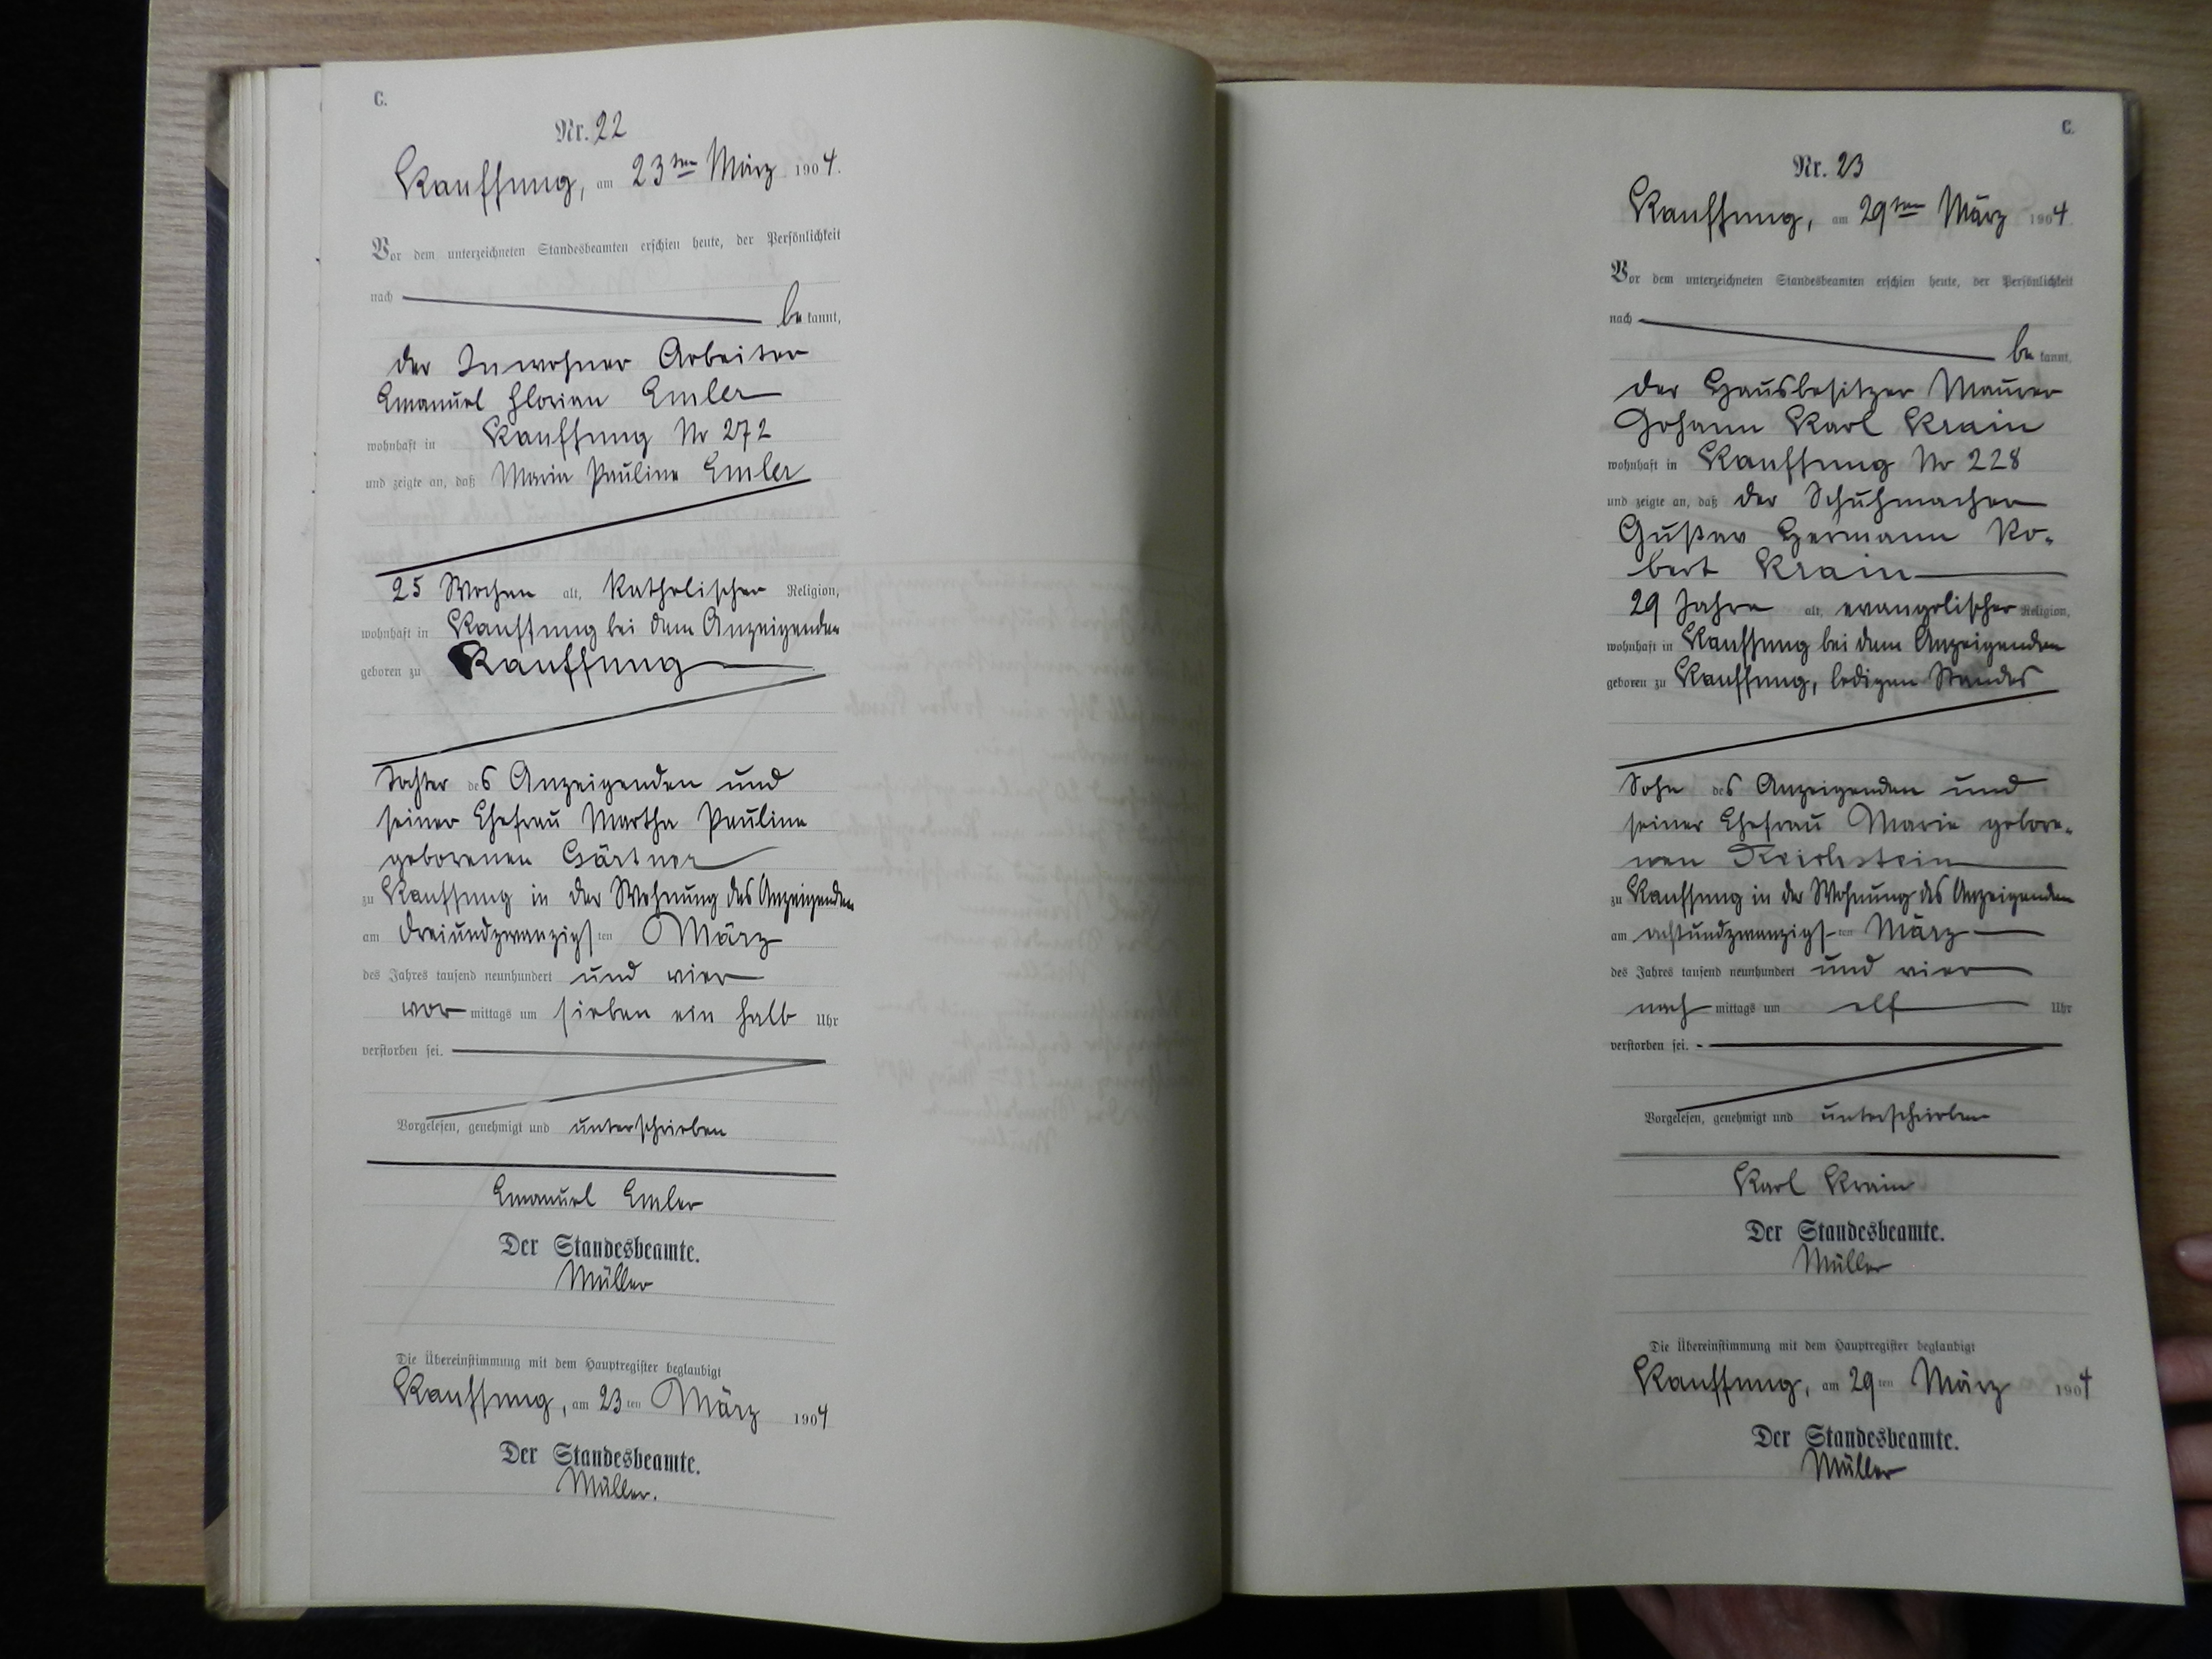 C.
Nr. 22
Kauffung, am 23ten März 1904.
Vor dem unterzeichneten Standesbeamten erschien heute, der Persönlichkeit
nach
be kannt,
der Inwohner Arbeiter
Emanuel Florian Emler
wohnhaft in Kauffung Nr 272
und zeigte an, daß Maria Pauline Emler
25 Wochen alt, katholischer Religion,
wohnhaft in Kauffung bei dem Anzeigenden
geboren zu Kauffung
Tochter des Anzeigenden und
seiner Ehefrau Martha Pauline
geborenen Gärtner
zu Kauffung in der Wohnung des Anzeigenden
am dreiundzwanzigsten März
des Jahres tausend neunhundert und vier
vor mittags um sieben ein halb Uhr
verstorben sei.
Vorgelesen, genehmigt und unterschrieben
Emanuel Emler
Der Standesbeamte.
Müller
Die Übereinstimmung mit dem Hauptregister beglaubigt
Kauffung, am 23ten März 1904
Der Standesbeamte.
Müller.
C.
Nr. 23
Kauffung, am 29ten März 1904.
Vor dem unterzeichneten Standesbeamten erschien heute, der Persönlichkeit
nach
be kannt,
der Hausbesitzer Maurer
Johann Karl Krain
wohnhaft in Kauffung Nr 228
und zeigte an, daß der Schuhmacher
Gustav Hermann Ro-
bert Krain
29 Jahre alt, evangelischer Religion,
wohnhaft in Kauffung bei dem Anzeigenden
geboren zu Kauffung, ledigen Standes
Sohn des Anzeigenden und
seiner Ehefrau Marie gebore-
nen Reichstein
zu Kauffung in der Wohnung des Anzeigenden
am achtundzwanzigsten März
des Jahres tausend neunhundert und vier
nach mittags um elf Uhr
verstorben sei.
Vorgelesen, genehmigt und unterschrieben
Karl Krain
Der Standesbeamte.
Müller
Die Übereinstimmung mit dem Hauptregister beglaubigt
Kauffung, am 29ten März 1904
Der Standesbeamte.
Müller